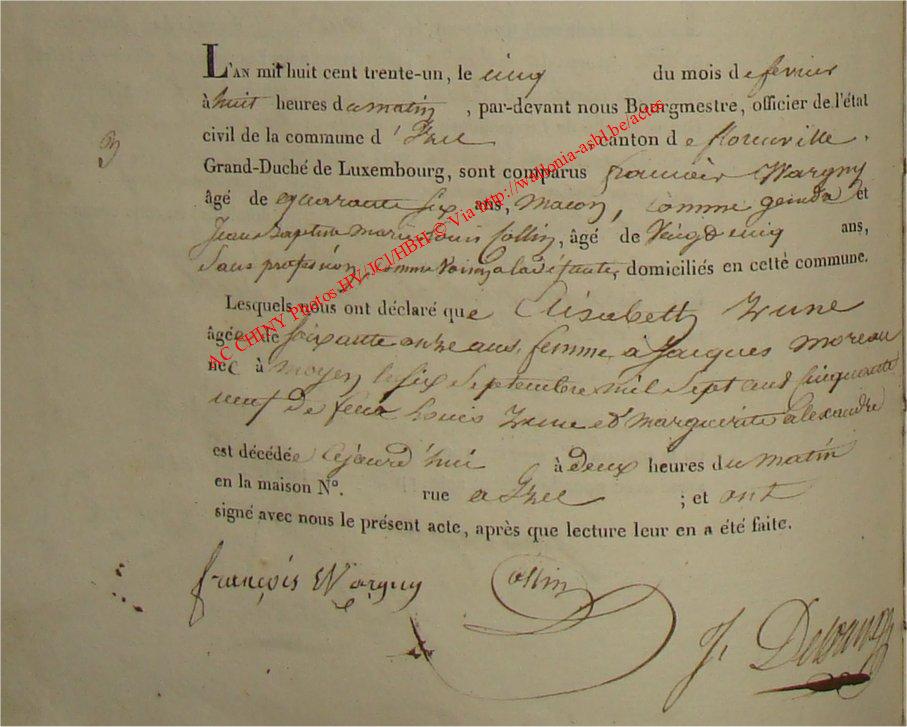 L'AN mil huit cent trente-un, le cinq du mois de fevrier
à huit heures du matin, par-devant nous Bourgmestre, officier de l'état
civil de la commune d'Izel canton de florenville.
Grand-Duché de Luxembourg, sont comparus françois Wargny
âgé de quarante six ans, macon, comme gendre et
Jean Baptiste marie louis Collin, âgé de Vingt cinq ans,
sans profession, comme voisin a la défunte, domiciliés en cette commune.
Lesquels nous ont déclaré que Elisabeth Zune
âgée de soixante onze ans, femme à Jacques moreau
née à moyen le six septembre mil sept cent cinquante
neuf de feux Louis Zune et marguerite alexandre
est décédée cejourd'hui à deux heures du matin
en la maison N°. rue a Izel ; et ont
signé avec nous le présent acte, après que lecture leur en a été faite.
françois Wargny Collin
J.
AC CHINY Photos HV/JCI/HBH © Via http://wallonia-asbl.be/actes